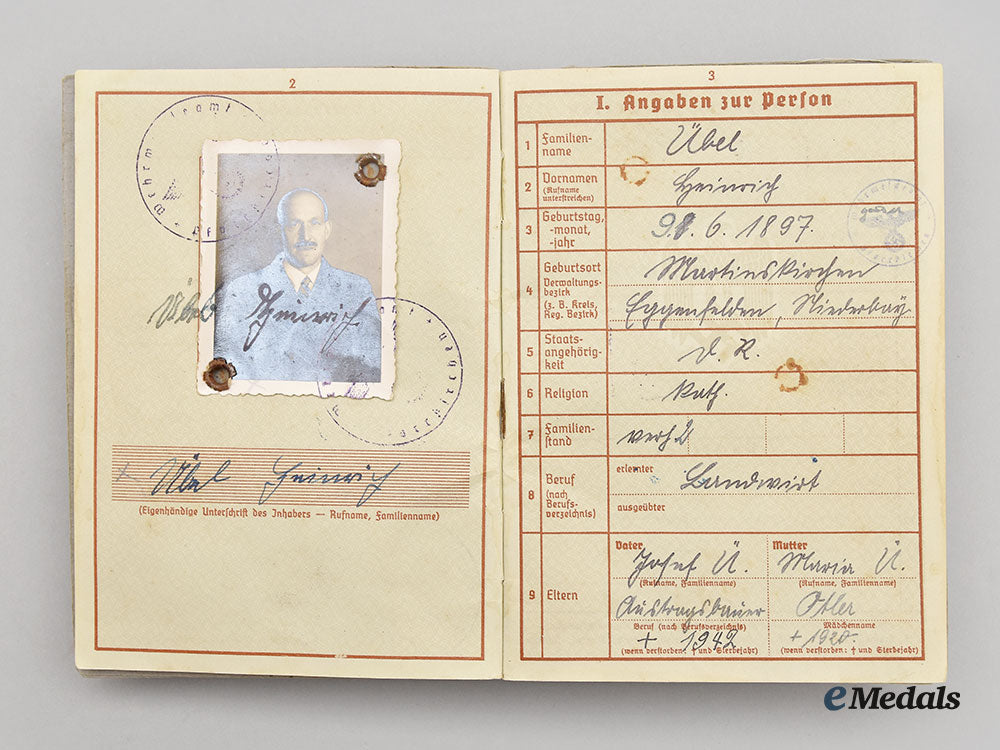 2
Wehrm
Übel Heinrich
Übel Heinrich
(Eigenhändige Unterschrift des Inhabers — Rufname, Familienname)
3
I. Angaben zur Person
1 Familien-
name
Übel
2 Vornamen
(Rufname
unterstreichen)
Heinrich
3 Geburtstag,
-monat,
-jahr
6. 1897.
4 Geburtsort
Verwaltungs-
bezirk
(z. B. Kreis,
Reg. Bezirk)
Martinskirchen
Eggenfelden, Niederbay
5 Staats-
angehörig-
keit
D. R.
6 Religion
kath.
7 Familien-
stand
verh. 2
8 Beruf
(nach
Berufs-
verzeichnis)
erlernter
Landwirt
ausgeübter
9 Eltern
Vater Mutter
Josef Ü. Maria Ü.
(Rufname, Familienname) (Rufname, Familienname)
Austragsbauer
Beruf (nach Berufsverzeichnis) Mädchenname
+ 1942 + 1920.
(wenn verstorben: † und Sterbejahr) (wenn verstorben: † und Sterbejahr)
eMedals